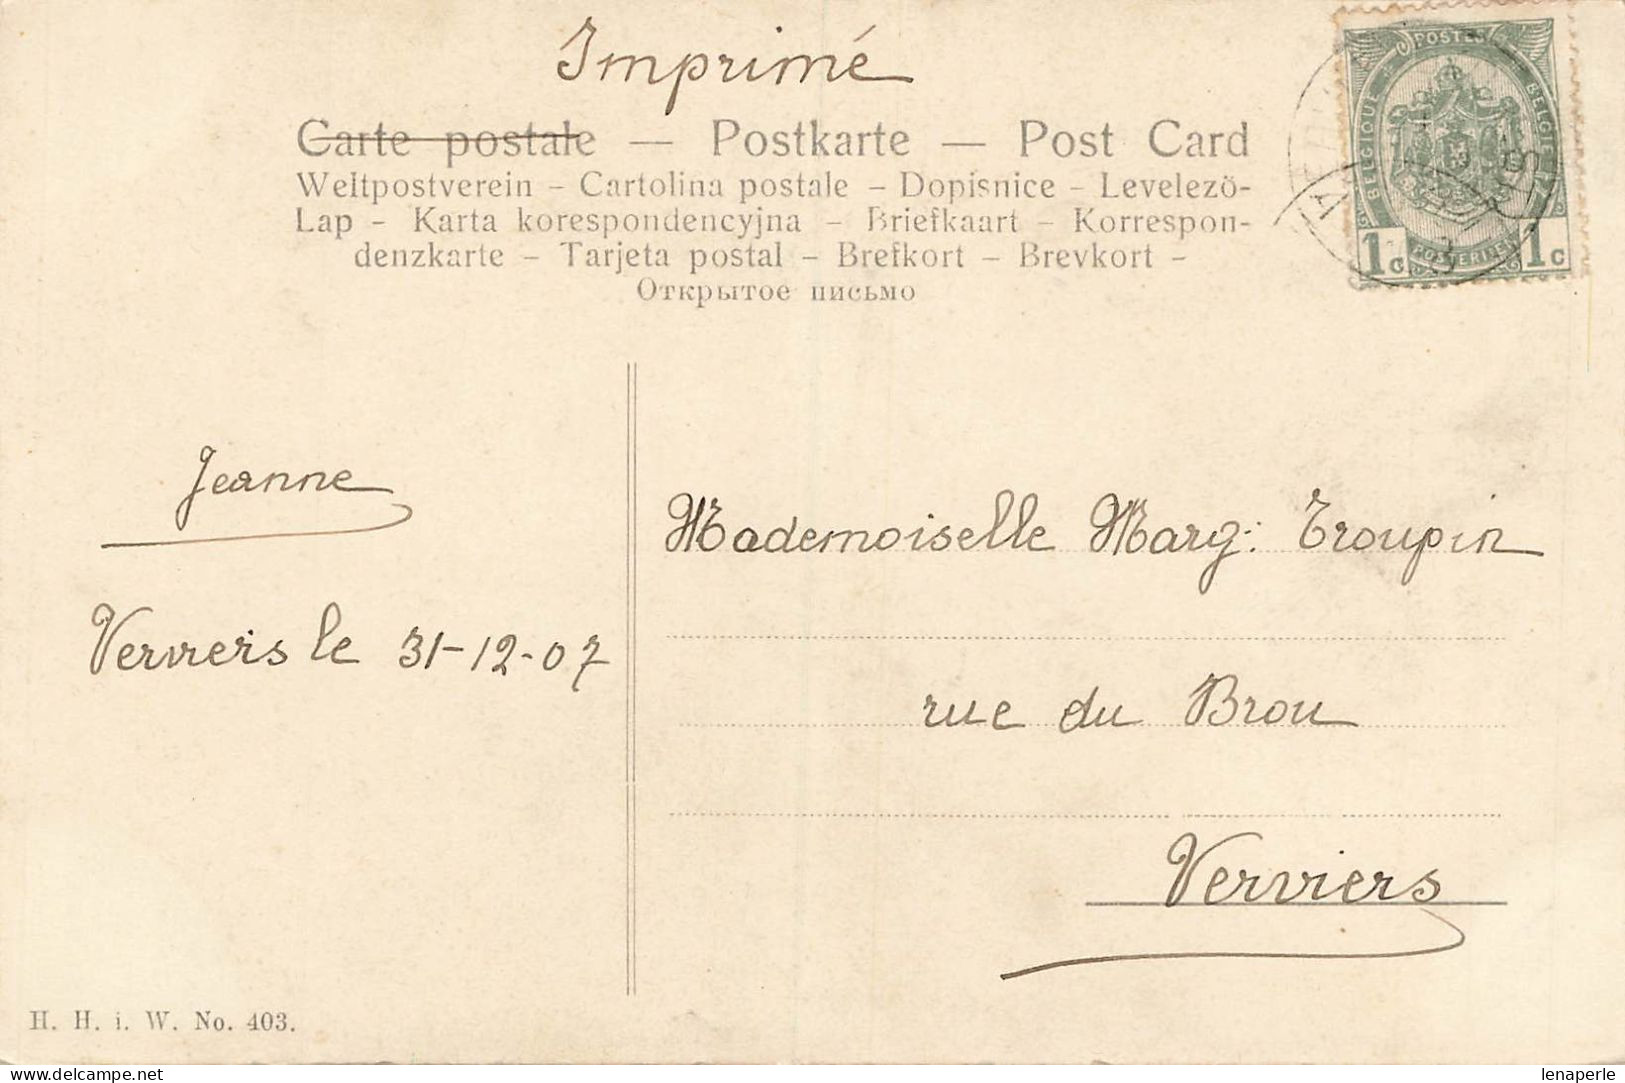 Imprimé
POSTES
BELGIQUE
BELGIE
1c
1c
POSTERIJEN
Carte postale — Postkarte — Post Card
Weltpostverein – Cartolina postale – Dopisnice – Levelezö-
Lap – Karta korespondencyjna – Briefkaart – Korrespon-
denzkarte – Tarjeta postal – Brefkort – Brevkort –
Открытое письмо
Jeanne
Verviers le 31-12-07
Mademoiselle Marg: Troupin
rue du Brou
Verviers
H. H. i. W. No. 403.
lenaperle